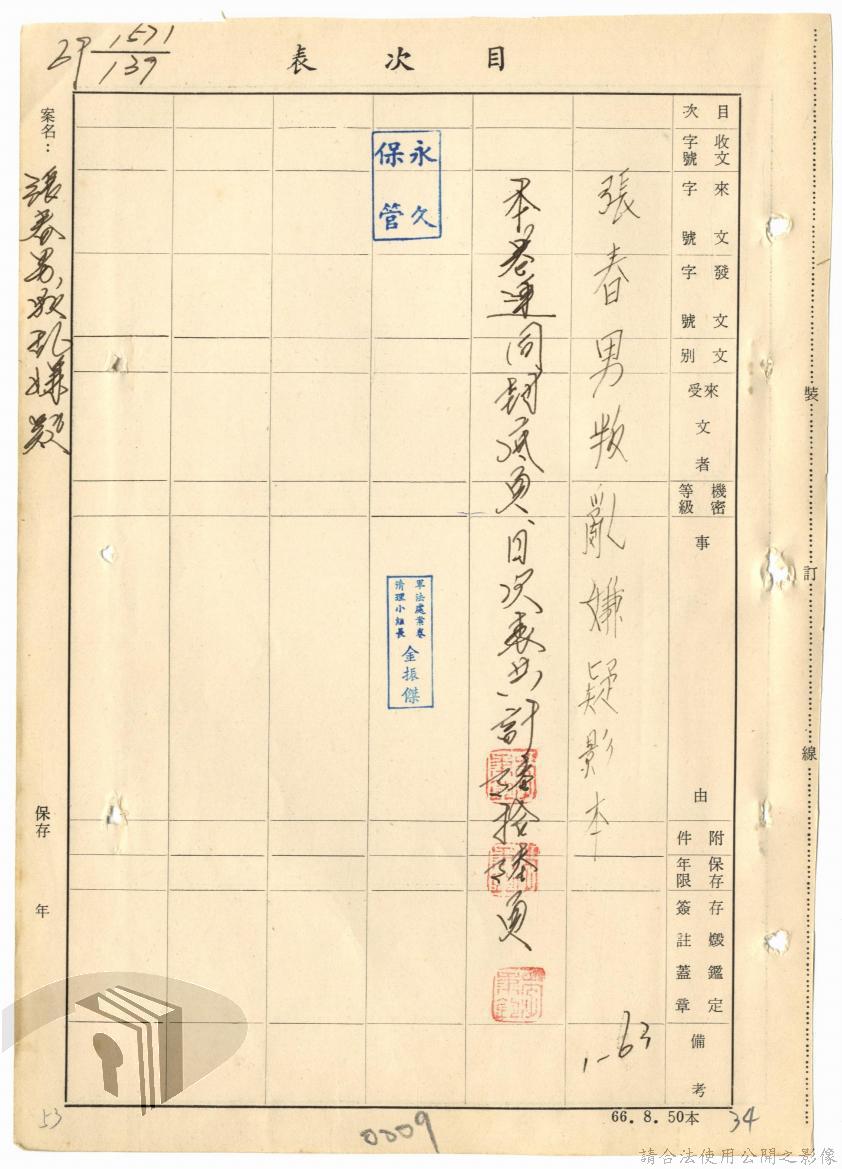 1571
139
目次表
裝
訂
線
目次
收文字號
來文字號
發文字號
文別
來受文者
機密等級
事由
附件
保存年限
存燬鑑定簽註蓋章
備考
張春男叛亂嫌疑影本
1-63
本卷連同封底頁、目次表共計 拾 頁
永久保管
軍法處案卷
清理小組長
金振傑
案名：
張春男叛乱嫌疑
保存 年
66.8.50本
34
53
0009
請合法使用公開之影像